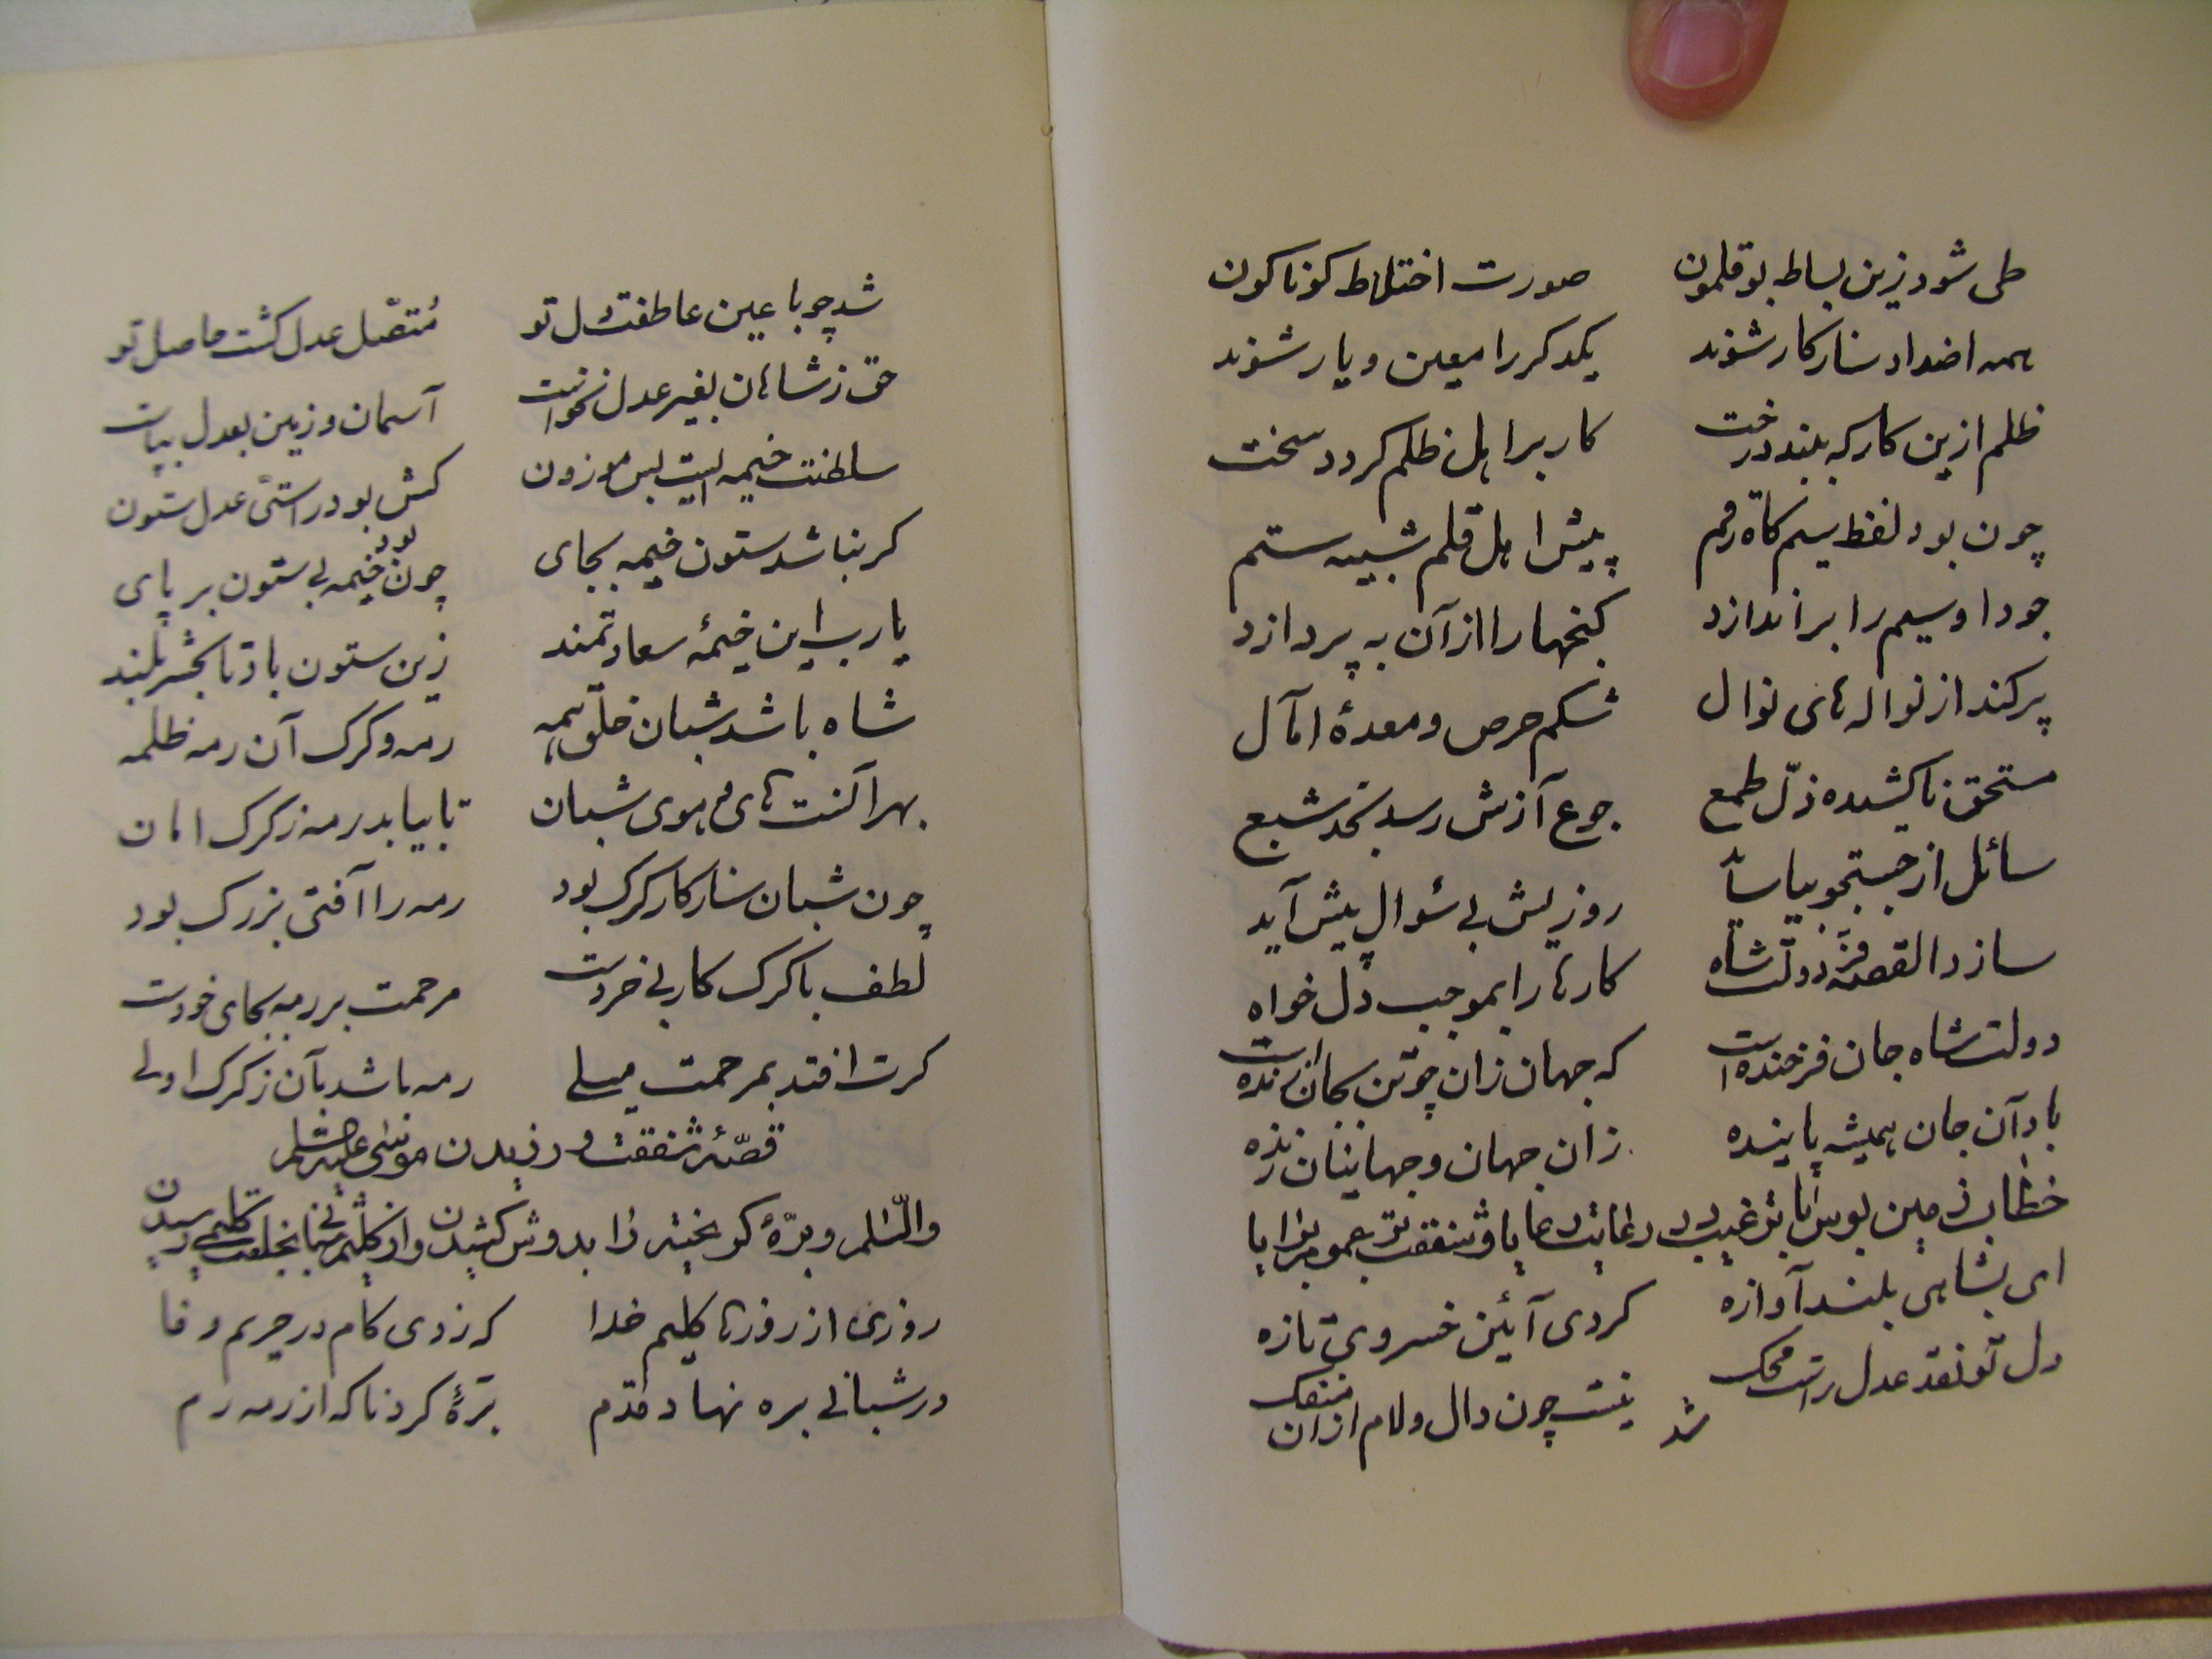 طی شود زین بساط بوقلمون صورت اختلاط کوناکون
همه اضداد سازکار شوند یکدکر را معین و یار شوند
ظلم ازین کار که ببندد رخت کار بر اهل ظلم کردد سخت
چون بود لفظ سیم کاه رقم پیش اهل قلم شبیه ستم
جود او سیم را براندازد کنجها را از آن به پردازد
پر کند از نواله های نوال شکم حرص و معدهٔ امآل
مستحق ناکشیده ذلّ طمع جوع آزش رسد بحد شبع
سائل از جستجو بیاساید روزیش بی سٔوال پیش آید
سازد القصه فرّ دولت شاه کارها را بموجب دل خواه
دولت شاه جان فرخنده است که جهان زان چو تن بجان زنده است
باد آن جان همیشه پاینده زان جهان و جهانیان زنده
خطاب زمین بوس با ترغیب در رعایت رعایا و شفقت بر عموم برایا
ای بشاهی بلند آوازه کردی آئین خسروی تازه
دل تو نقد عدل راست محک نیست چون دال و لام ازان منفک
شد
شد چو با عین عاطفت دل تو مُتصّل عدل کشت حاصل تو
حق ز شاهان بغیر عدل نخواست آسمان و زمین بعدل بپاست
سلطنت خیمه ایست بس موزون کش بود راستی عدل ستون
کر نباشد ستون خیمه بجای چون بود خیمه بی ستون بر پای
یا رب این خیمهٔ سعادتمند زین ستون باد تا بحشر بلند
شاه باشد شبان خلق همه رمه و کرک آن رمه ظلمه
بهر آنست های و هوی شبان تا بیابد رمه ز کرک امان
چون شبان سازکار کرک بود رمه را آفتی بزرک بود
لطف با کرک کار بی خردست مرحمت بر رمه بجای خودست
کرت افتد بمرحمت میلی رمه باشد بآن ز کرک اولی
قصّهٔ شفقت ورزیدن موسی علیه الصلوة
والسّلم و برّهٔ کریخته را بدوش کشیدن و از کلیم شبانی بخلعت کلیمی رسیدن
روزی از روزها کلیم خدا که زدی کام در حریم وفا
در شبانی بره نهاد قدم برّهٔ کرد ناکه از رمه رم